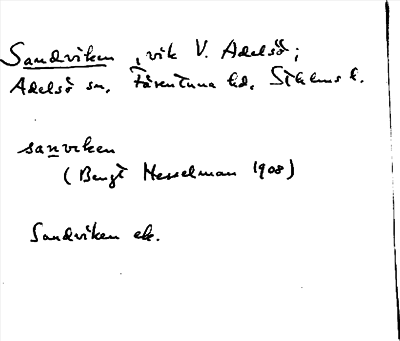 Sandviken, vik V. Adelsö;
Adelsö sn, Färentuna hd, Sthlms l.
sanviken
(Bengt Hesselman 1908)
Sandviken ek.